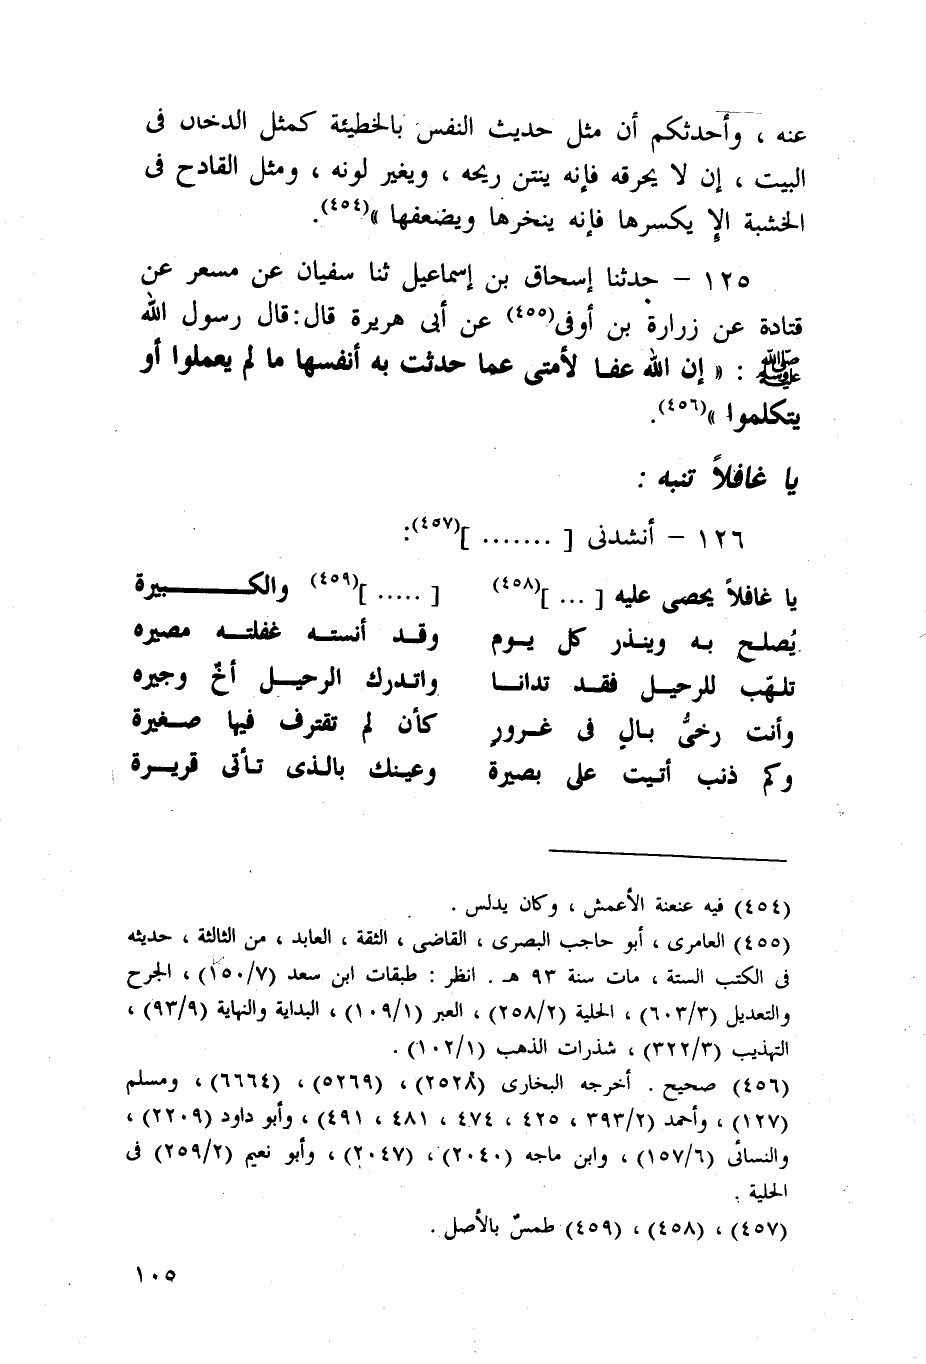 عنه ، وأحدثكم أن مثل حديث النفس بالخطيئة كمثل الدخان فى
البيت ، إن لا يحرقه فإنه ينتن ريحه ، ويغير لونه ، ومثل القادح فى
الخشبة الإِ يكسرها فإنه ينخرها ويضعفها »(٤٥٤).
١٢٥ – حدثنا إسحاق بن إسماعيل ثنا سفيان عن مسعر عن
قتادة عن زرارة بن أوفى(٤٥٥) عن أبى هريرة قال: قال رسول الله
ﷺ : « إن الله عفا لأمتى عما حدثت به أنفسها ما لم يعملوا أو
يتكلموا »(٤٥٦).
يا غافلاً تنبه :
١٢٦ – أنشدنى [ ....... ](٤٥٧):
يا غافلاً يحصى عليه [ ... ](٤٥٨) [ ..... ](٤٥٩) والكـــــبيرة
يُصلـح بـه وينـذر كل يـوم وقـد أنستـه غفلتـه مصيره
تلهّب للرحيـل فقـد تدانـا واتـدرك الرحيـل أخٌ وجيره
وأنت رخىُّ بـالٍ فى غـرورٍ كأن لم تقترف فيها صـغيرة
وكم ذنب أتـيت على بصيرة وعينـك بالـذى تـأتى قريـرة
(٤٥٤) فيه عنعنة الأعمش ، وكان يدلس .
(٤٥٥) العامرى ، أبو حاجب البصرى ، القاضى ، الثقة ، العابد ، من الثالثة ، حديثه
فى الكتب الستة ، مات سنة ٩٣ هـ . انظر : طبقات ابن سعد (١٥٠/٧) ، الجرح
والتعديل (٦٠٣/٣) ، الحلية (٢٥٨/٢) ، العبر (١٠٩/١) ، البداية والنهاية (٩٣/٩) ،
التهذيب (٣٢٢/٣) ، شذرات الذهب (١٠٢/١) .
(٤٥٦) صحيح . أخرجه البخارى (٢٥٢٨) ، (٥٢٦٩) ، (٦٦٦٤) ، ومسلم
(١٢٧) ، وأحمد (٣٩٣/٢ ، ٤٢٥ ، ٤٧٤ ، ٤٨١ ، ٤٩١) ، وأبو داود (٢٢٠٩) ،
والنسائى (١٥٧/٦) ، وابن ماجه (٢٠٤٠) ، (٢٠٤٧) ، وأبو نعيم (٢٥٩/٢) فى
الحلية .
(٤٥٧) ، (٤٥٨) ، (٤٥٩) طمسٌ بالأصل .
١٠٥